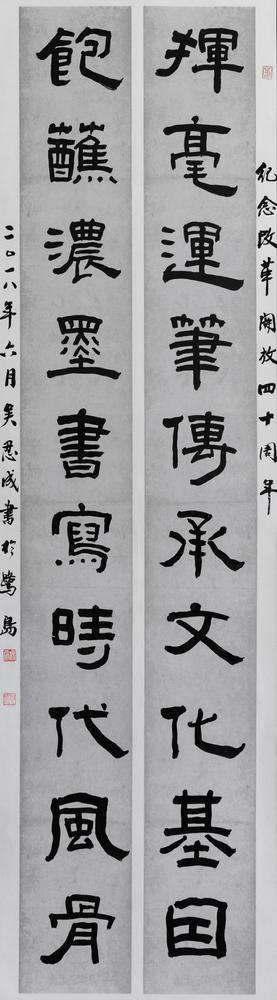 纪念改革開放四十周年
揮毫運筆傳承文化基因
飽蘸濃墨書寫時代風骨
二〇一八年六月吳慈成書於鷺島